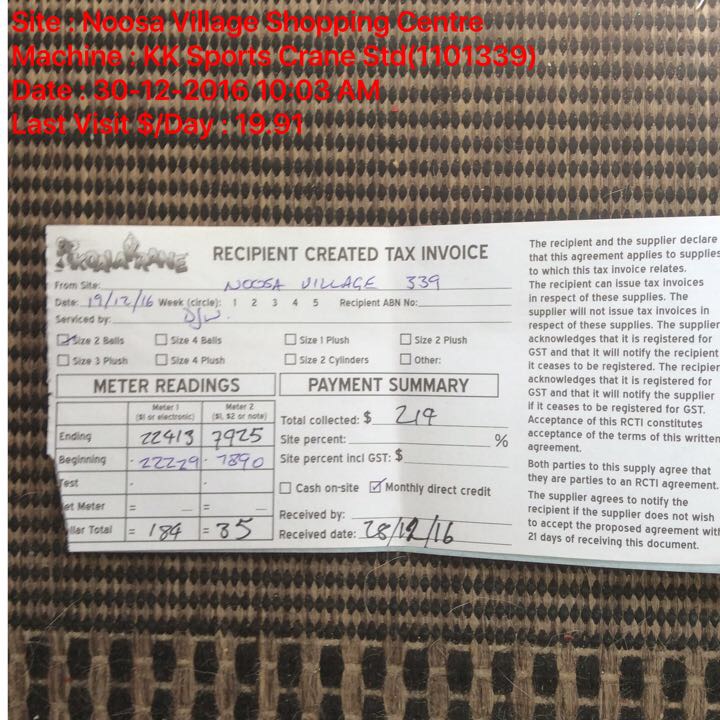 Site : Noosa Village Shopping Centre
Machine : KK Sports Crane Std(1101339)
Date : 30-12-2016 10:03 AM
Last Visit $/Day : 19.91
RECIPIENT CREATED TAX INVOICE
From Site: NOOSA VILLAGE 339
Date: 19/12/16 Week (circle): 1 2 3 4 5 Recipient ABN No:
Serviced by: DJW.
Size 2 Balls Size 4 Balls Size 1 Plush Size 2 Plush
Size 3 Plush Size 4 Plush Size 2 Cylinders Other:
METER READINGS
Meter 1 Meter 2
($1 or electronic) ($1, $2 or note)
Ending 22413 7925
Beginning 22229 7890
Test - -
et Meter = =
llar Total = 184 = 35
PAYMENT SUMMARY
Total collected: $ 219
Site percent: %
Site percent incl GST: $
Cash on-site Monthly direct credit
Received by:
Received date: 28/12/16
The recipient and the supplier declare
that this agreement applies to supplies
to which this tax invoice relates.
The recipient can issue tax invoices
in respect of these supplies. The
supplier will not issue tax invoices in
respect of these supplies. The supplier
acknowledges that it is registered for
GST and that it will notify the recipient
it ceases to be registered. The recipien
acknowledges that it is registered for
GST and that it will notify the supplier
if it ceases to be registered for GST.
Acceptance of this RCTI constitutes
acceptance of the terms of this written
agreement.
Both parties to this supply agree that
they are parties to an RCTI agreement.
The supplier agrees to notify the
recipient if the supplier does not wish
to accept the proposed agreement with
21 days of receiving this document.